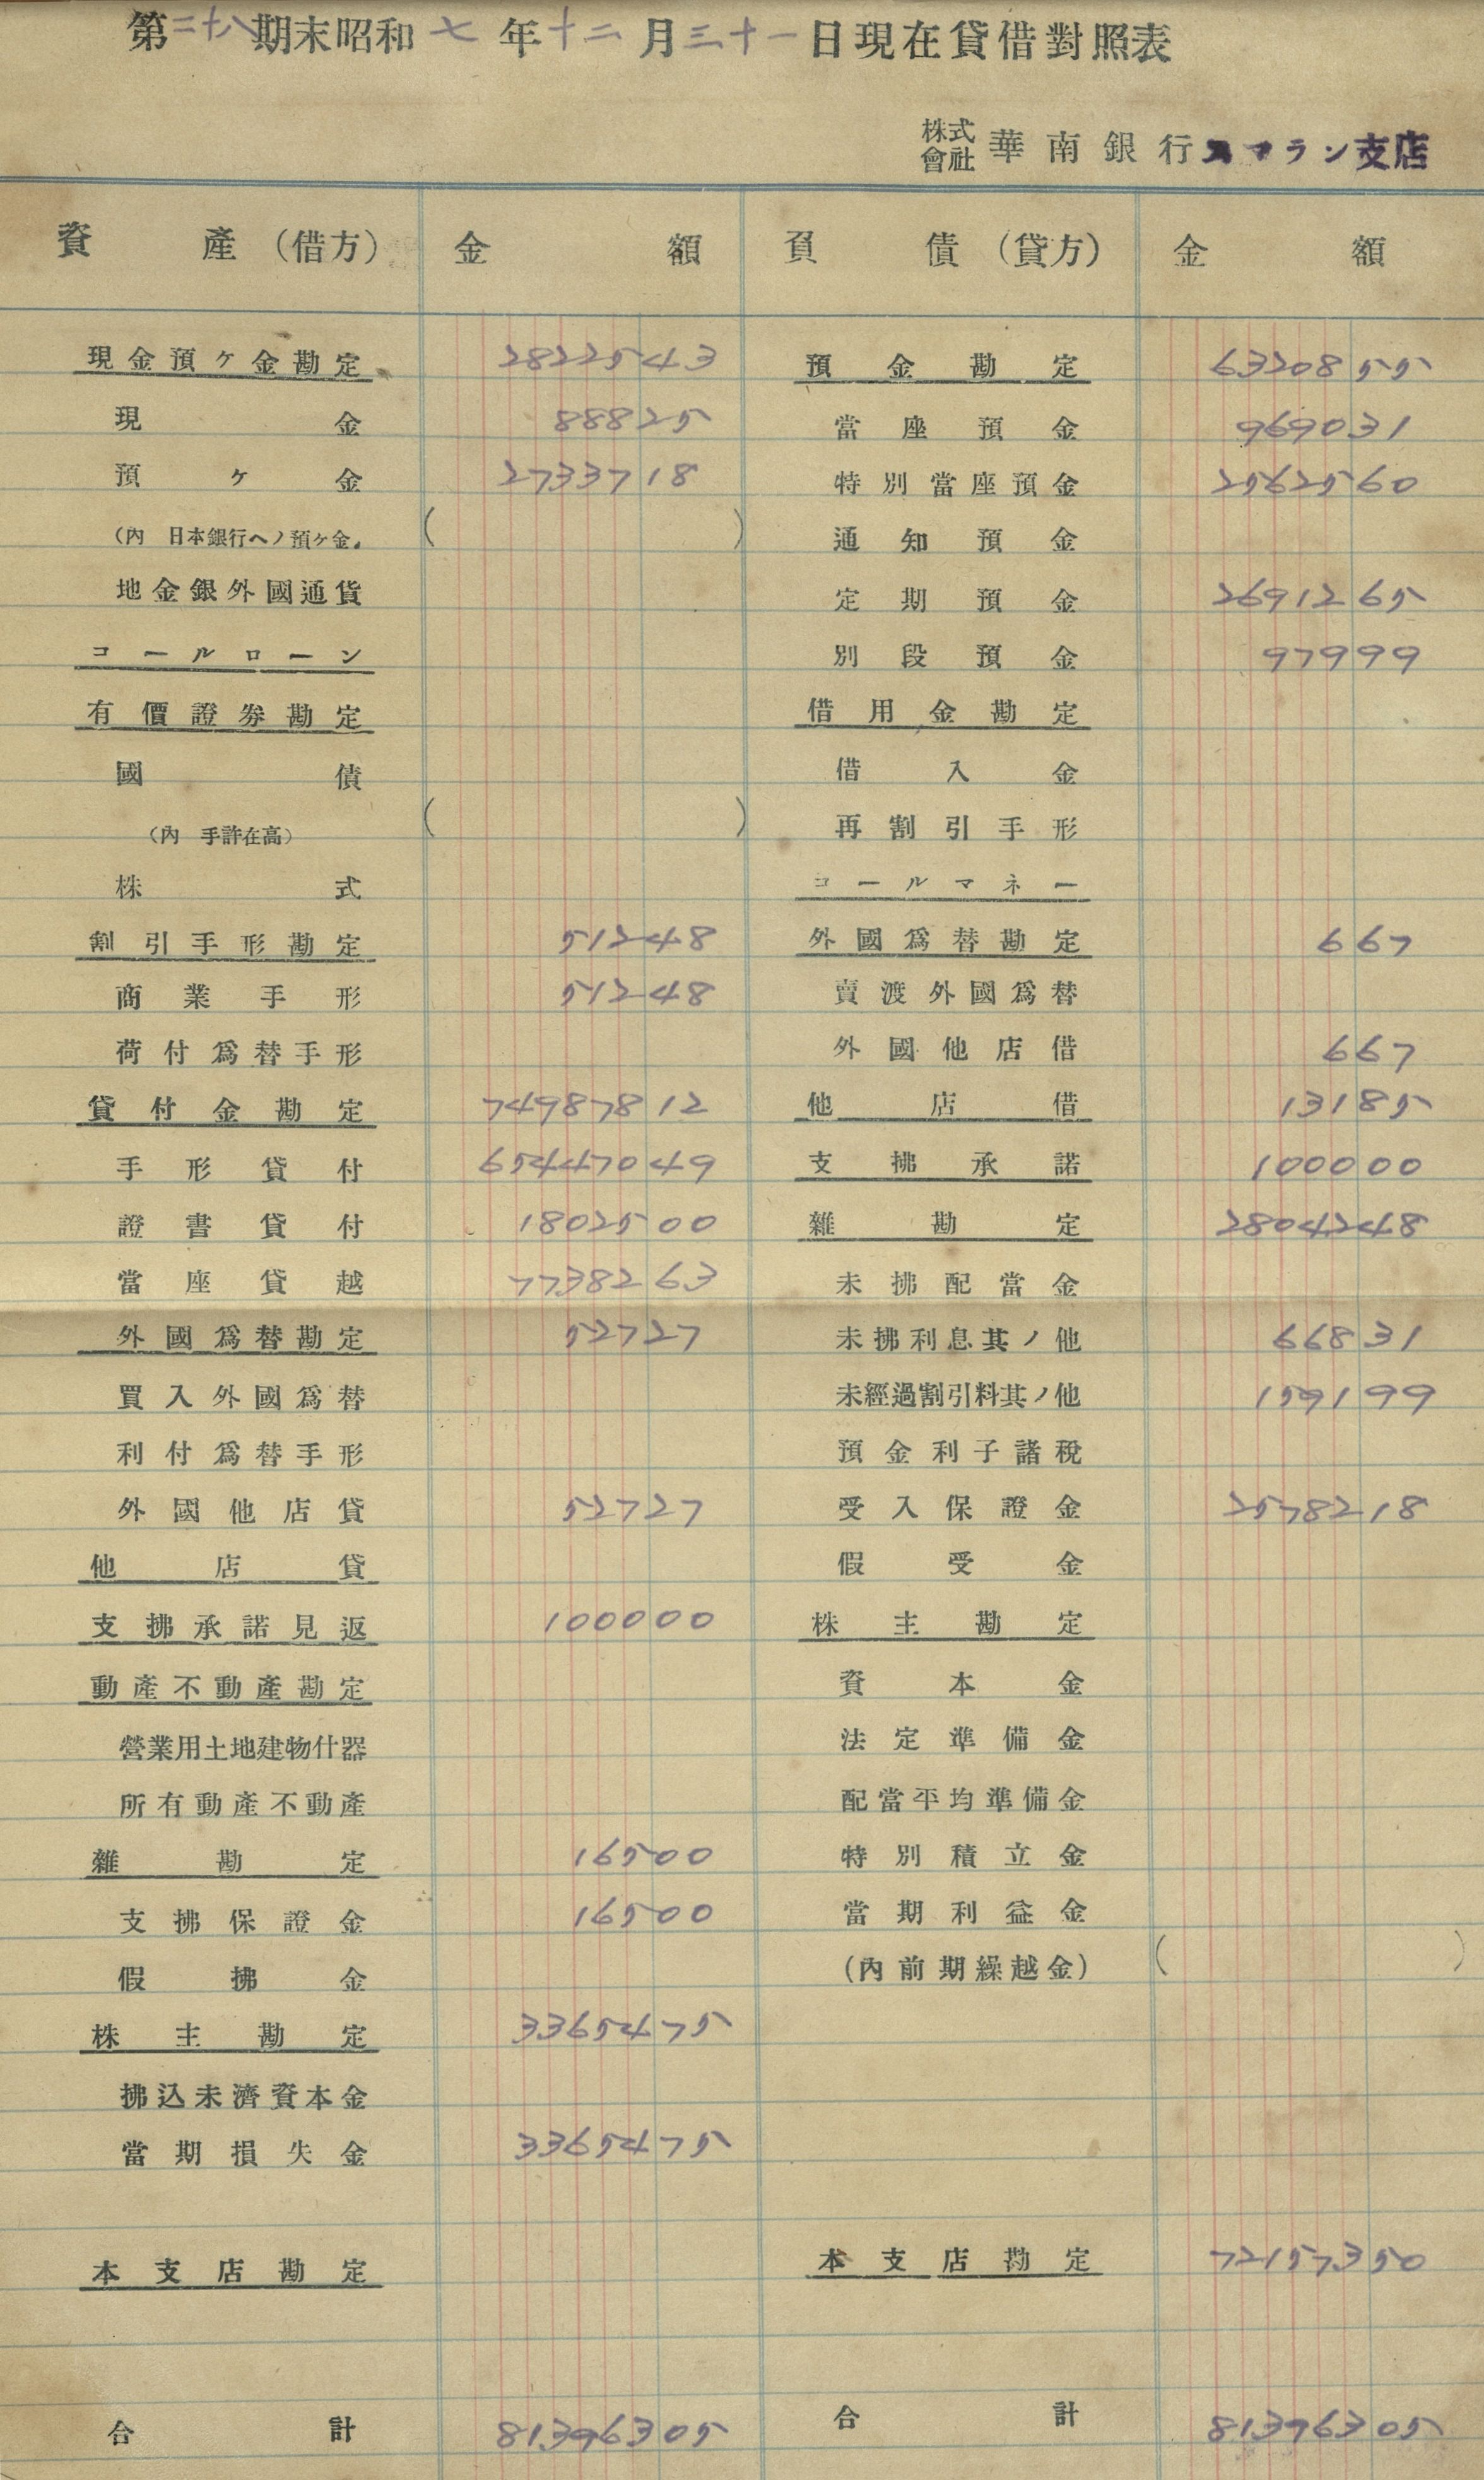 第二十八期末昭和七年十二月三十一日現在貸借對照表
株式會社 華南銀行スマラン支店
資產(借方) 金額 負債(貸方) 金額
現金預ケ金勘定 2822543 預金勘定 6320855
現金 88825 當座預金 969031
預ケ金 2733718 特別當座預金 2562560
(內 日本銀行ヘノ預ケ金) ( ) 通知預金
地金銀外國通貨 定期預金 2691265
コールローン 別段預金 97999
有價證券勘定 借用金勘定
國債 借入金
(內 手許在高) ( ) 再割引手形
株式 コールマネー
割引手形勘定 51248 外國爲替勘定 667
商業手形 51248 賣渡外國爲替
荷付爲替手形 外國他店借 667
貸付金勘定 74987812 他店借 13185
手形貸付 65447049 支拂承諾 100000
證書貸付 1802500 雜勘定 2804248
當座貸越 7738263 未拂配當金
外國爲替勘定 52727 未拂利息其ノ他 66831
買入外國爲替 未經過割引料其ノ他 159199
利付爲替手形 預金利子諸稅
外國他店貸 52727 受入保證金 2578218
他店貸 假受金
支拂承諾見返 100000 株主勘定
動產不動產勘定 資本金
營業用土地建物什器 法定準備金
所有動產不動產 配當平均準備金
雜勘定 16500 特別積立金
支拂保證金 16500 當期利益金
假拂金 (內前期繰越金) ( )
株主勘定 3365475
拂込未濟資本金
當期損失金 3365475
本支店勘定 本支店勘定 72157350
合計 81396305 合計 81396305